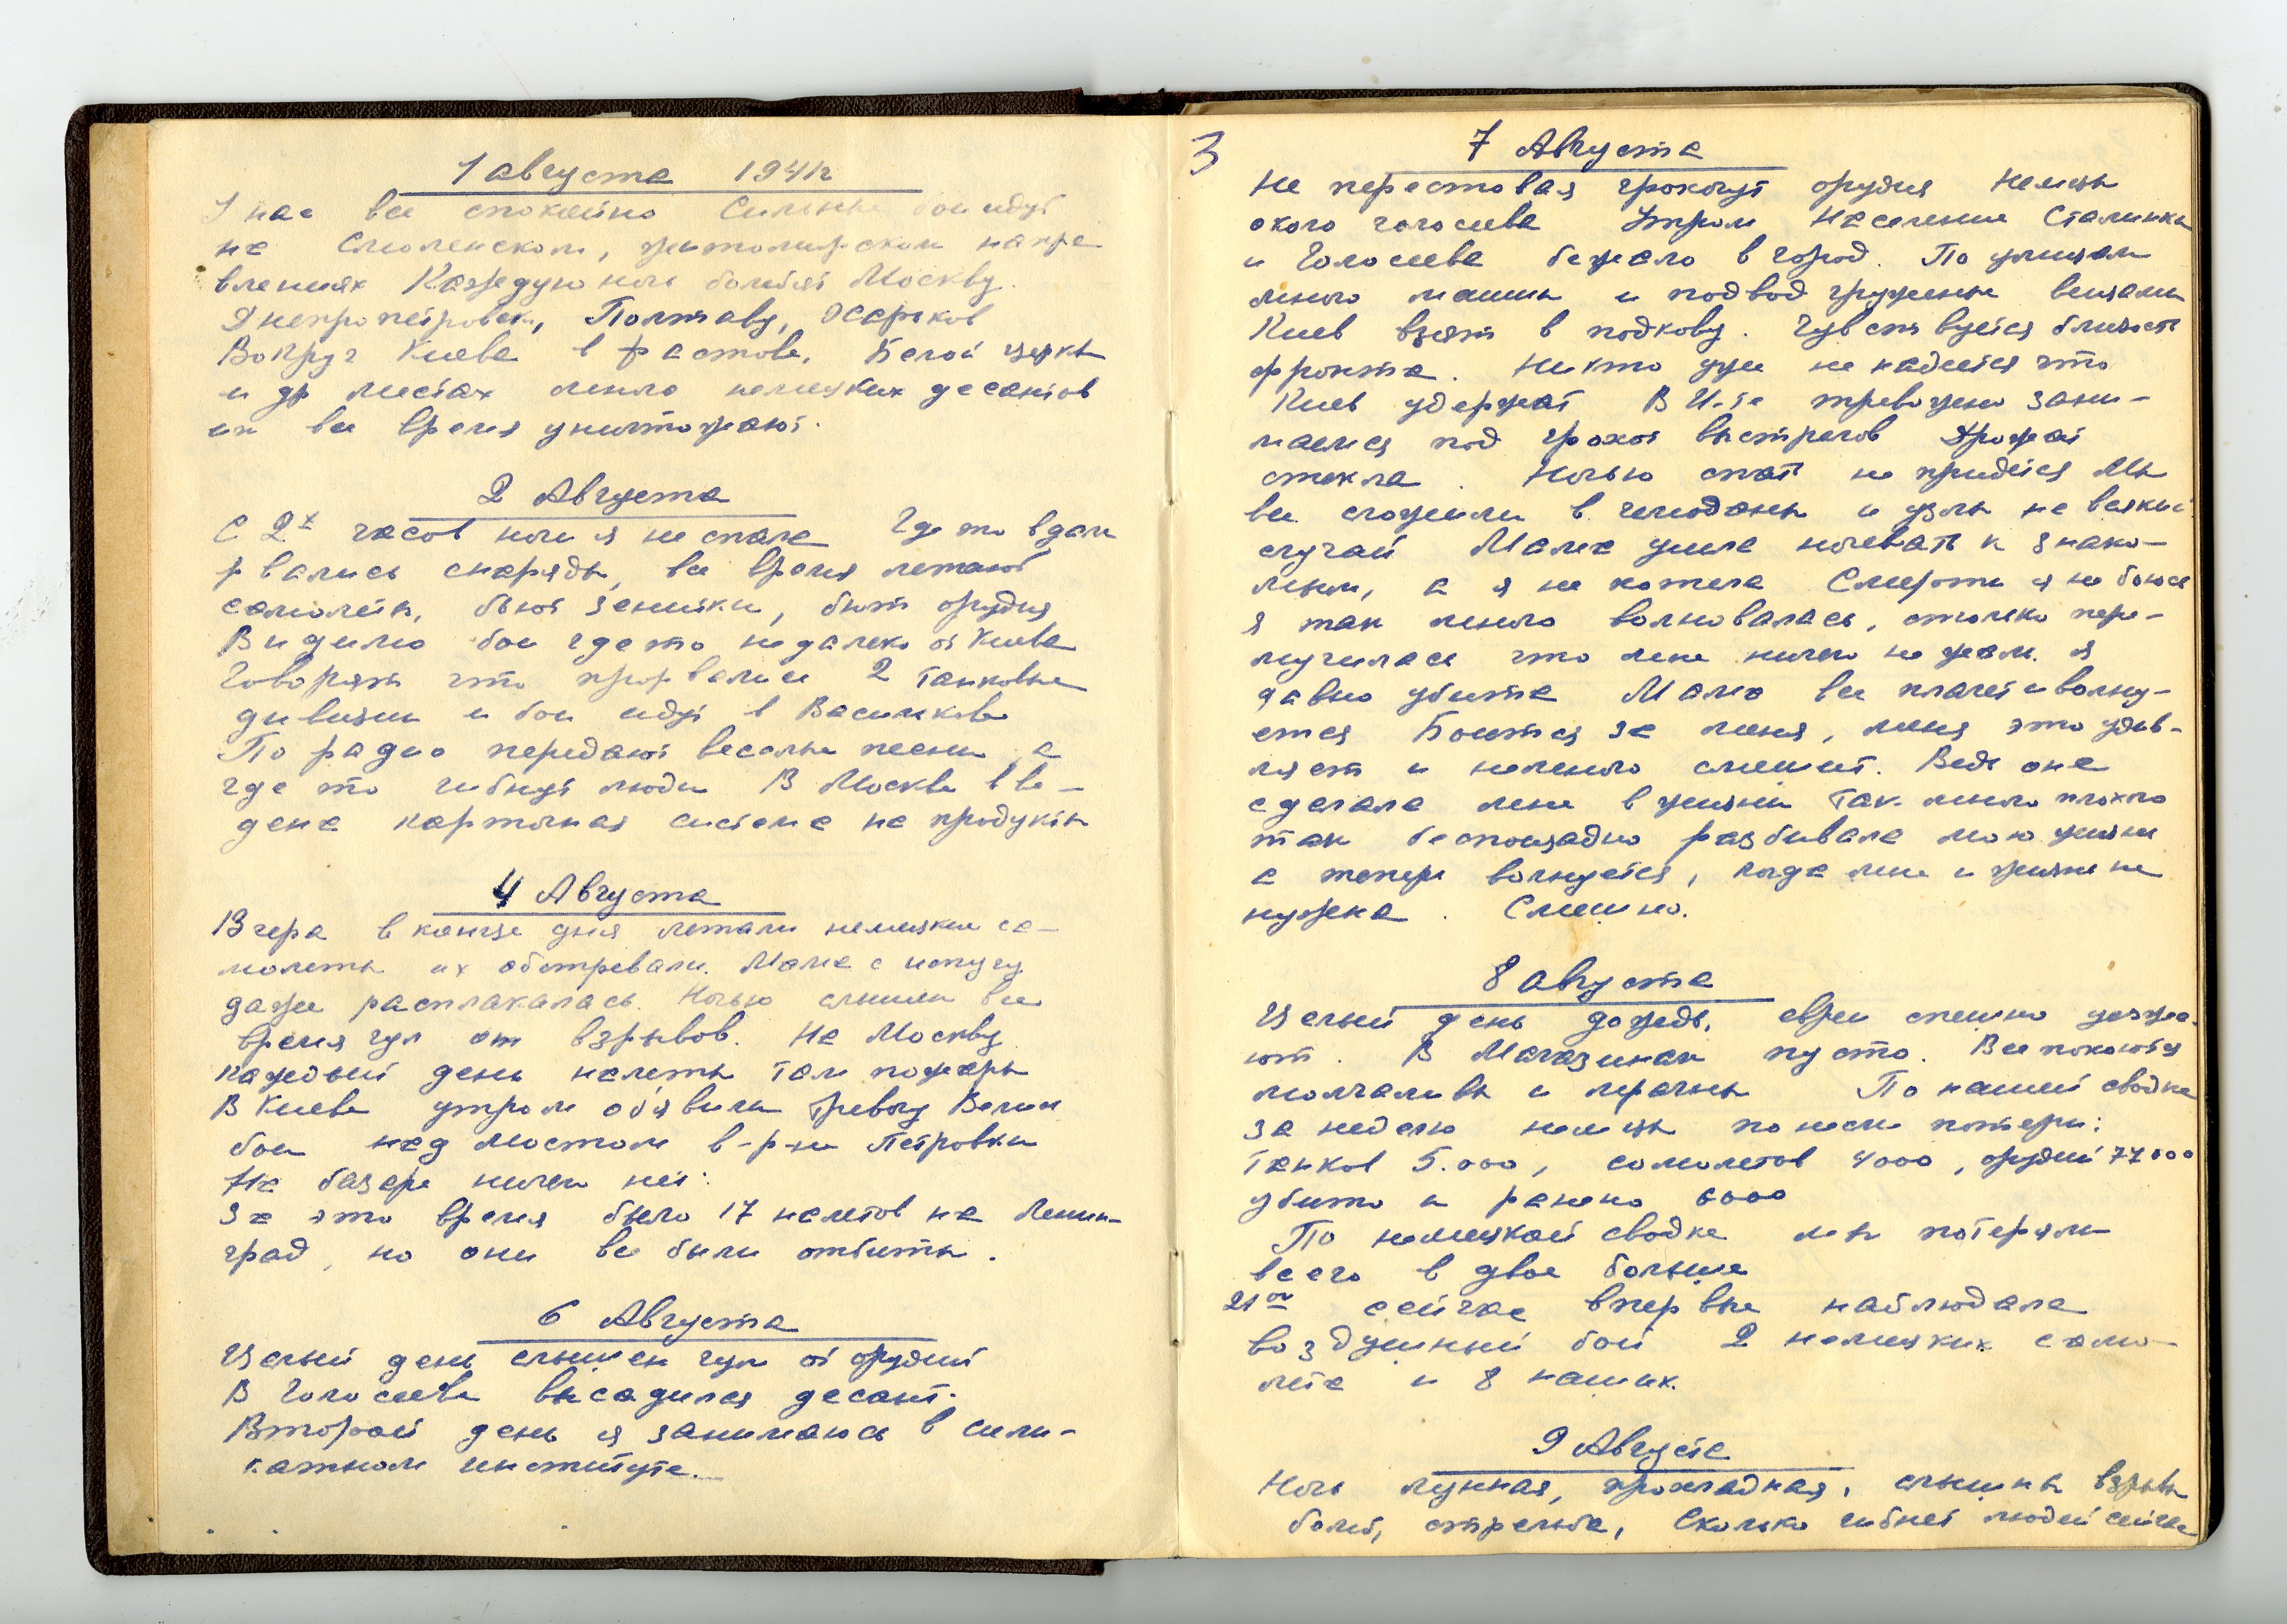 1 августа 1941г
У нас все спокойно Сильные бои идут
на Смоленском, житомирском напра
влениях Каждую ночь бомбят Москву.
Днепропетровск, Полтаву, Харьков
Вокруг Киева в Фастове, Белой церкви
и др местах много немецких десантов
их все время уничтожают.
2 Августа
С 2х часов ночи я не спала Где то вдали
рвались снаряды, все время летают
самолеты, бьют зенитки, бьют орудия
Видимо бои где то недалеко от Киева
Говорят что прорвались 2 танковые
дивизии и бои идут в Василькове
По радио передают веселые песни а
где то гибнут люди В Москве вве-
дена карточная система на продукты
4 Августа
Вчера в конце дня летали немецкие са-
молеты их обстреливали. Мама с испугу
даже расплакалась. Ночью слышен все
время гул от взрывов. На Москву
каждый день налеты там пожары
В Киеве утром объявили тревогу Велись
бои над мостом в-р-не Петровки
На базаре ничего нет.
За это время было 17 налетов на Ленин-
град, но они все были отбиты.
6 Августа
Целый день слышен гул от орудий
В Голосеево высадился десант.
Второй день я занимаюсь в сили-
катном институте.
3
7 Августа
Не переставая грохочут орудия Немцы
около голосеева Утром население Сталинки
и Голосеева бежало в город. По улицам
много машин и подвод груженые вещами
Киев взят в подкову. Чувствуется близость
фронта. Никто уже не надеется что
Киев удержат В И-те тревожно зани-
маемся под грохот выстрелов Дрожат
стекла. Ночью спать не придется Мы
все сложили в чемоданы и узлы на всякий
случай Мама ушла ночевать к знако-
мым, а я не хотела Смерти я не боюсь
я так много волновалась, столько пере-
мучилась что мне ничего не жаль. я
давно убита Мама все плачет и волну-
ется Боится за меня, меня это удив-
ляет и немного смешит. Ведь она
сделала мне в жизни так много плохого
так беспощадно разбивала мою жизнь
а теперь волнуется, когда мне и жизнь не
нужна. Смешно.
8 августа
Целый день дождь. евреи спешно уезжа-
ют. В Магазинах пусто. Все
молчаливы и мрачны По нашей сводке
за неделю немцы понесли потери:
танков 5.000, самолетов 4000, орудий 77000
убито и ранено 6000
По немецкой сводке мы потеряли
всего в двое больше
21ое сейчас впервые наблюдала
воздушный бой 2 немецких само-
лета и 8 наших.
9 Августа
Ночь лунная, прохладная, слышны взрывы
бомб, стрельба, Сколько гибнет людей сейчас